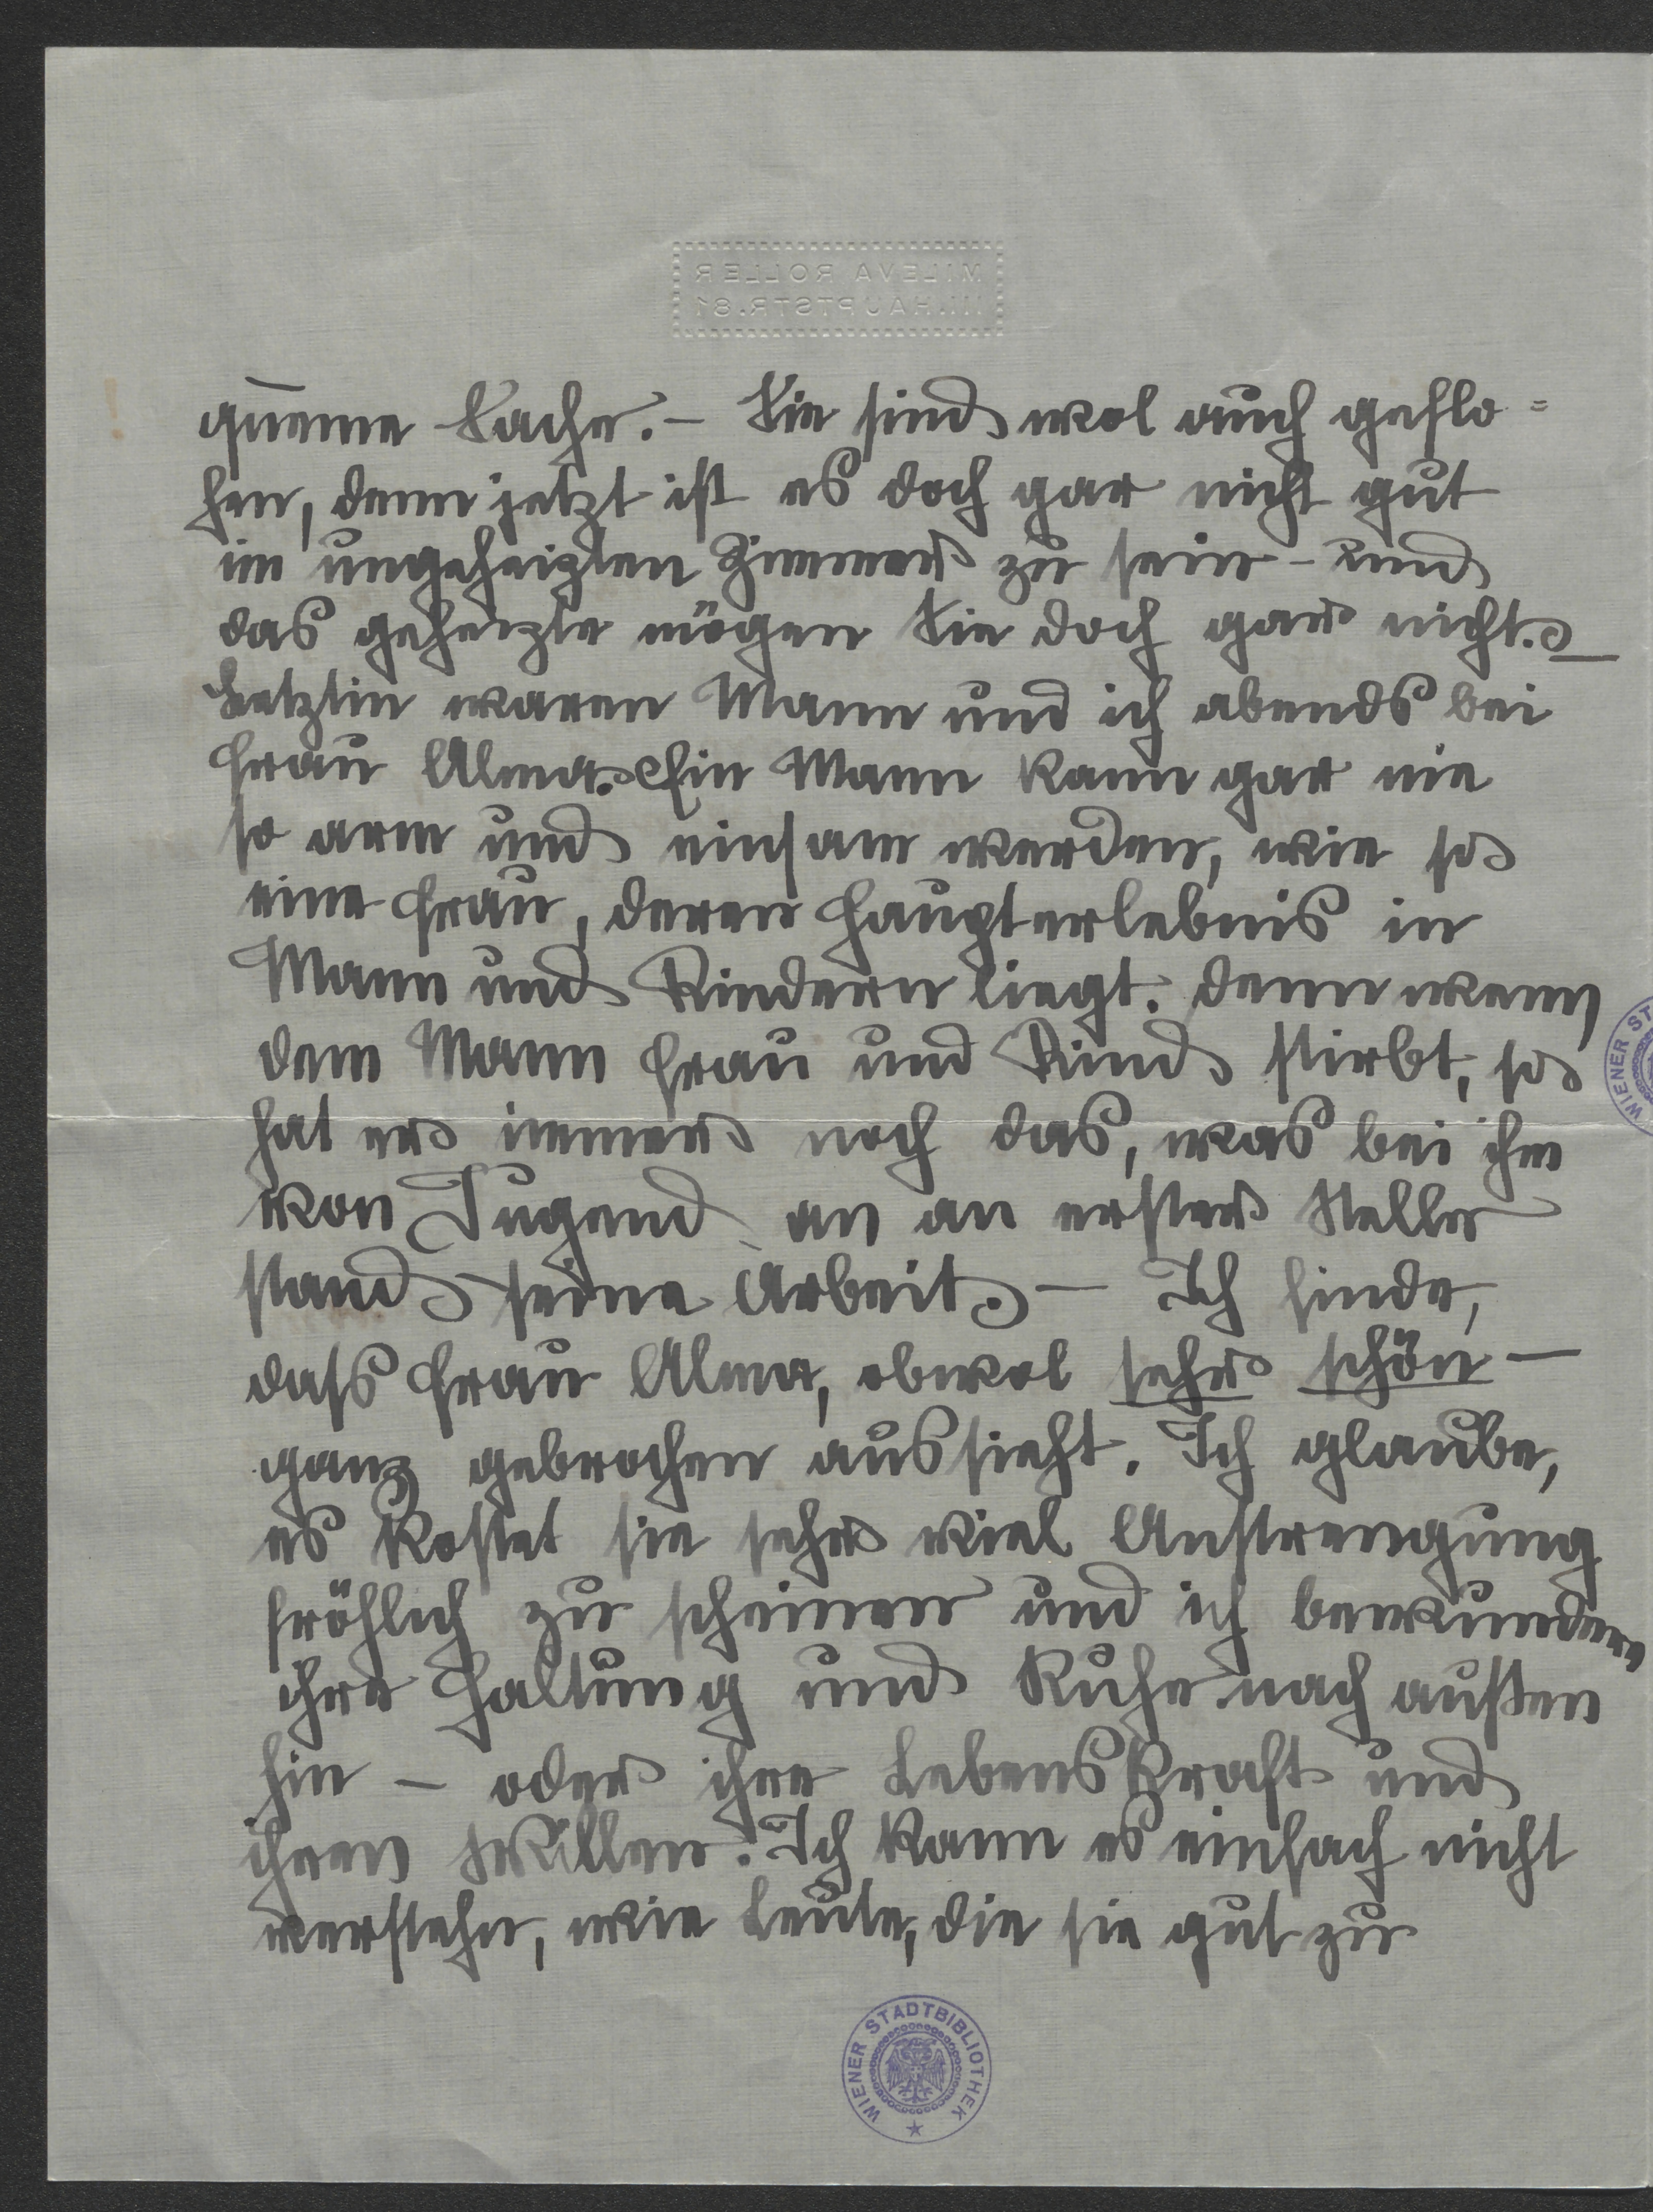 MILEVA ROLLER
III. HAUPTSTR. 81
queme Sache. – Sie sind wol auch geflo=
hen, denn jetzt ist es doch gar nicht gut
im ungeheizten Zimmer zu sein – und
das geheizte mögen Sie doch gar nicht. –
Letztin waren Mann und ich abends bei
Frau Alma. Ein Mann kann gar nie
so arm und einsam werden, wie so
eine Frau, deren Haupterlebnis in
Mann und Kindern liegt. Denn wenn
dem Mann Frau und Kind stirbt, so
hat er immer noch das, was bei ihm
von Jugend an an erster Stelle
stand, seine Arbeit. – Ich finde,
dass Frau Alma, obwol sehr schön –
ganz gebrochen aussieht. Ich glaube,
es kostet sie sehr viel Anstrengung
fröhlich zu scheinen und ich bewundere
ihre Haltung und Ruhe nach außen
hin – oder ihre Lebenskraft und
ihren Willen. Ich kann es einfach nicht
verstehn, wie Leute, die sie gut zu
WIENER ST
WIENER STADTBIBLIOTHEK